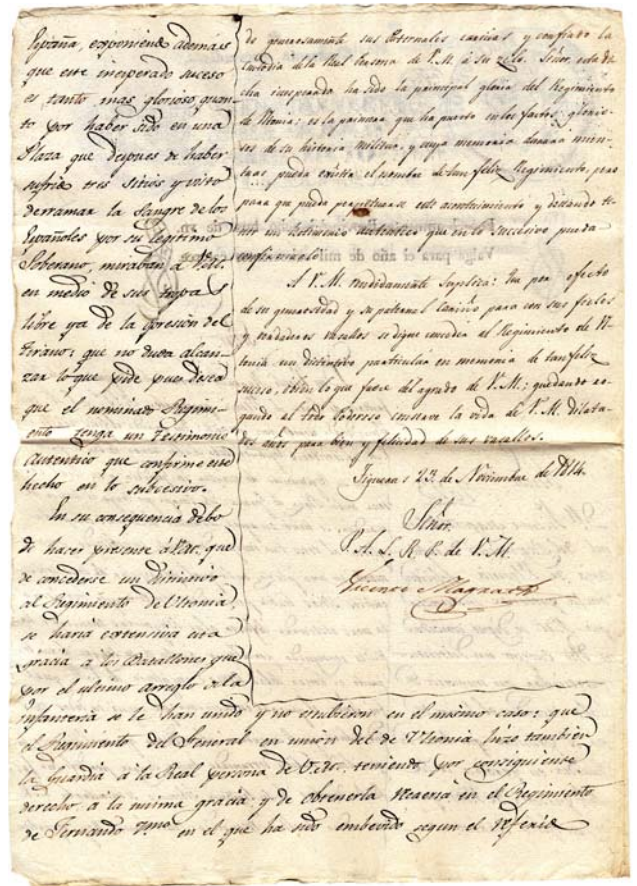 España, exponiendo además
que este inesperado suceso
es tanto mas glorioso, quan-
to por haber sido en una
Plaza que despues de haber
sufrido tres sitios y visto
derramar la sangre de los
Españoles por su legitimo
Soberano, miraban à V.M.
en medio de sus tropas
libre ya de la opresion del
tirano: que no duda alcan-
zar lo que pide pues desea
que el nominado Regimi-
ento tenga un testimonio
autentico que confirme este
hecho en lo subcesivo.
En su consequencia debo
de hacer presente à V.M. que
de concederse un distintivo
al Regimiento de Ultonia
se haria extensiva esta
gracia a los Batallones que
por el ultimo arreglo de la
infanteria se le han unido y no estubieron en el mismo caso: que
el Regimiento del General en union del de Ultonia hizo tambien
la Guardia à la Real persona de V.M. teniendo por consiguiente
derecho à la misma gracia: y de obtenerla recaeria en el Regimiento
de Fernando 7.mo en el que ha sido embebido segun el referido
do generosamente sus Paternales caricias y confiado la
custodia de la Real Persona de V.M. à su zelo. Señor, esta di-
cha inesperada ha sido la principal gloria del Regimiento
de Ultonia: es la primera que ha puesto en los fastos glorio-
sos de su historia militar, y cuya memoria durará mien-
tras pueda existir el nombre de tan feliz Regimiento, pero
para que pueda perpetuarse este acontecimiento y deseando te-
ner un testimonio autentico que en lo succesivo pueda
confirmarlo
A V.M. rendidamente suplica: Que por efecto
de su generosidad y su paternal cariño para con sus fieles
y verdaderos vasallos se digne conceder al Regimiento de Ul-
tonia un distintivo particular en memoria de tan feliz
suceso, ò bien lo que fuese del agrado de V.M.; quedando ro-
gando al todo Poderoso conserve la vida de V.M. dilata-
dos años para bien y felicidad de sus vasallos.
Figueras 23. de Noviembre de 1814.
Señor.
P. A. L. R. P. de V.M.
Vicente Magrath